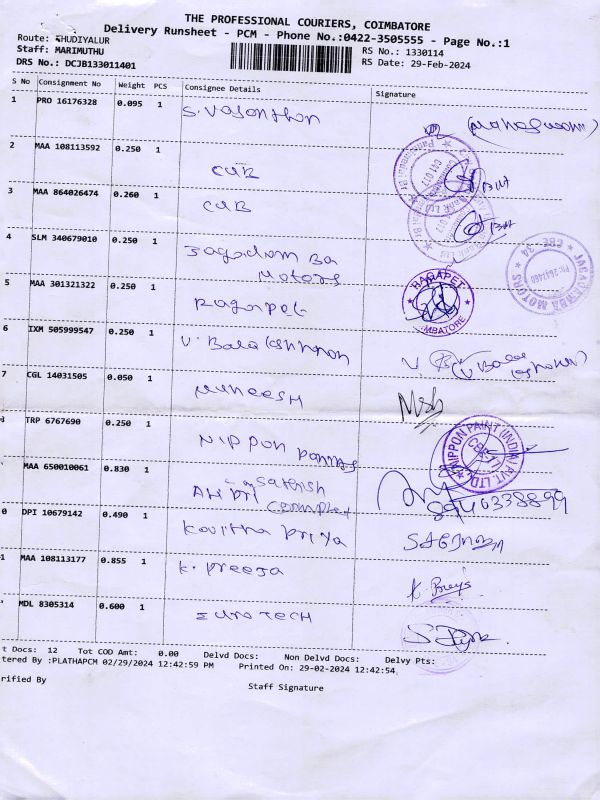 THE PROFESSIONAL COURIERS, COIMBATORE
Delivery Runsheet - PCM - Phone No.:0422-3505555 - Page No.:1
Route: THUDIYALUR
Staff: MARIMUTHU
RS No.: 1330114
DRS No.: DCJB133011401
RS Date: 29-Feb-2024
S No Consignment No Weight PCS Consignee Details Signature
1 PRO 16176328 0.095 1 S. Vasanthan
2 MAA 108113592 0.250 1 CUB
3 MAA 864026474 0.260 1 CUB
4 SLM 340679010 0.250 1 Jagadamba
Motors
5 MAA 301321322 0.250 1 Ragapet
RAGAPET
COIMBATORE
JAGADAMBA MOTORS
6 IXM 505999547 0.250 1 V. Balakrishnan
7 CGL 14031505 0.050 1 Muneesh
TRP 6767690 0.250 1 Nippon Paints
NIPPON PAINT (INDIA) PVT LTD
MAA 650010061 0.830 1 Sathish
8940338899
0 DPI 10679142 0.490 1 Kavitha Priya
1 MAA 108113177 0.855 1 K. Preeja
MDL 8305314 0.600 1 Eurotech
t Docs: 12 Tot COD Amt: 0.00 Delvd Docs: Non Delvd Docs: Delvy Pts:
tered By :PLATHAPCM 02/29/2024 12:42:59 PM Printed On: 29-02-2024 12:42:54
rified By
Staff Signature